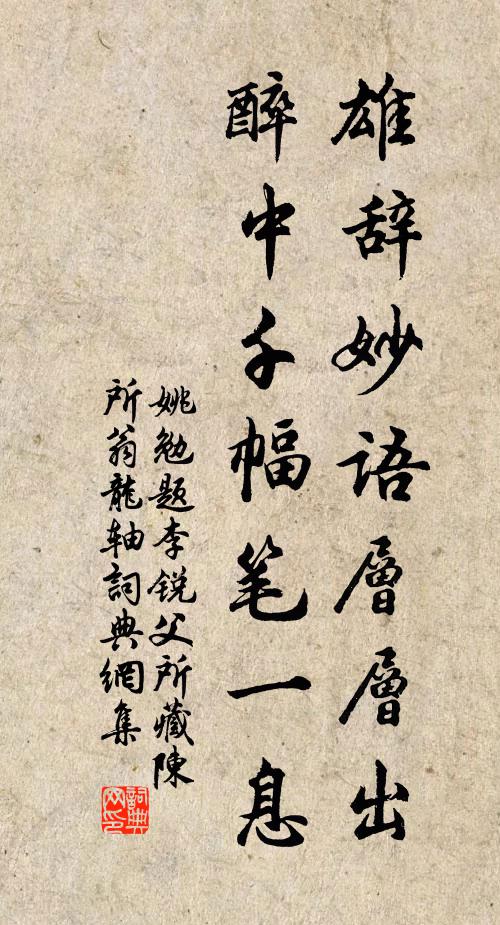 雄辞妙语層層出
醉中千幅笔一息
姚勉题李锐父所藏陳
所翁龍轴詞典網集
詞典
网印